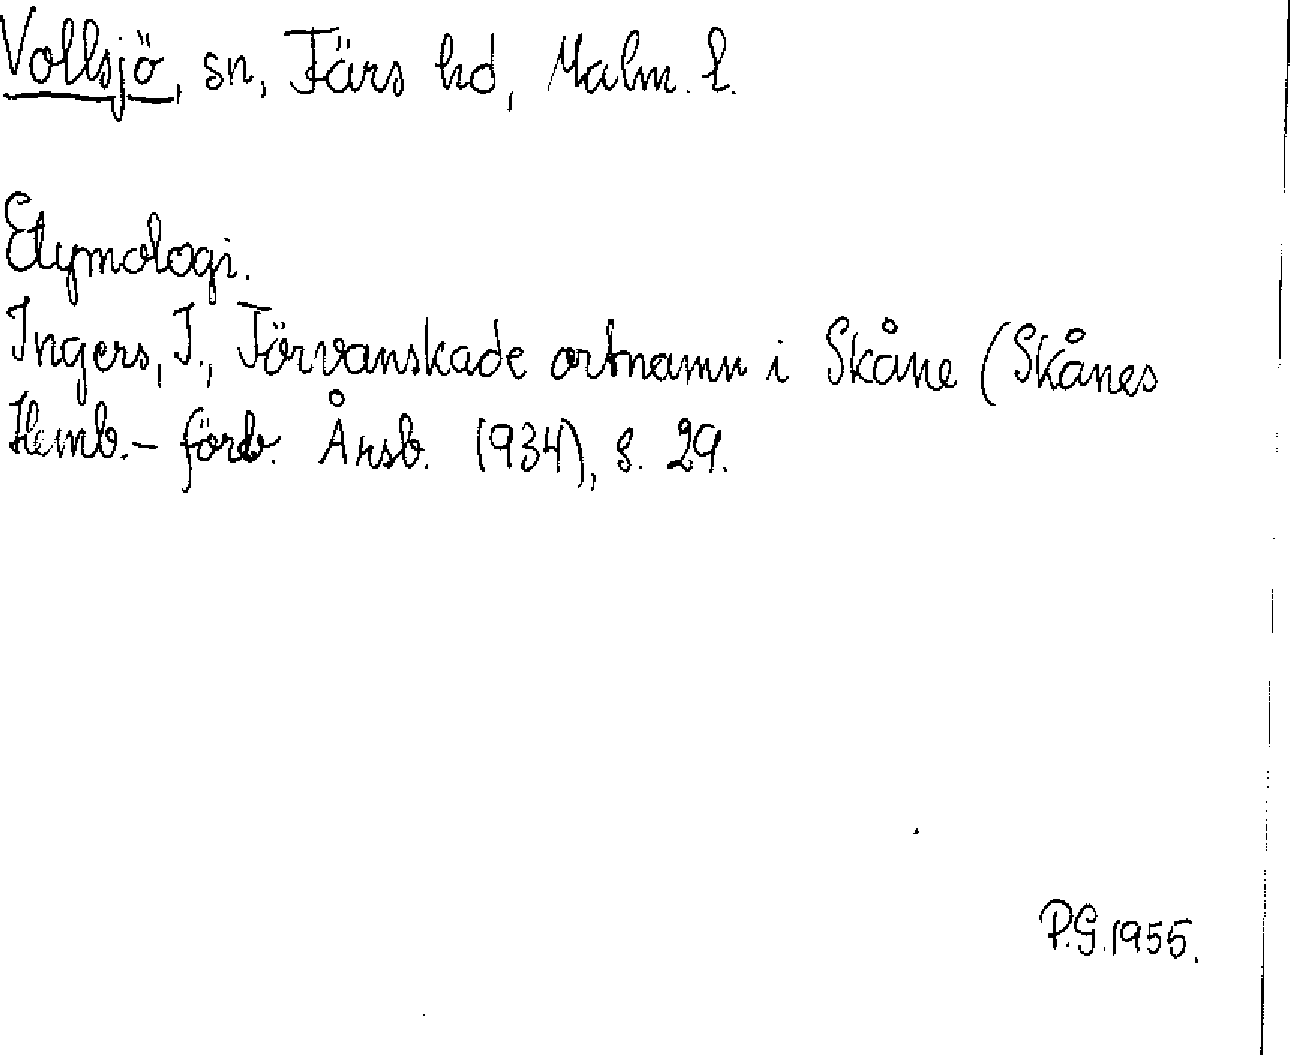 Vollsjö, sn, Färs hd, Malm. l.
Etymologi.
Ingers, I., Förvanskade ortnamn i Skåne (Skånes
Hemb.- förb. Årsb. 1934), s. 29.
P.G. 1955.